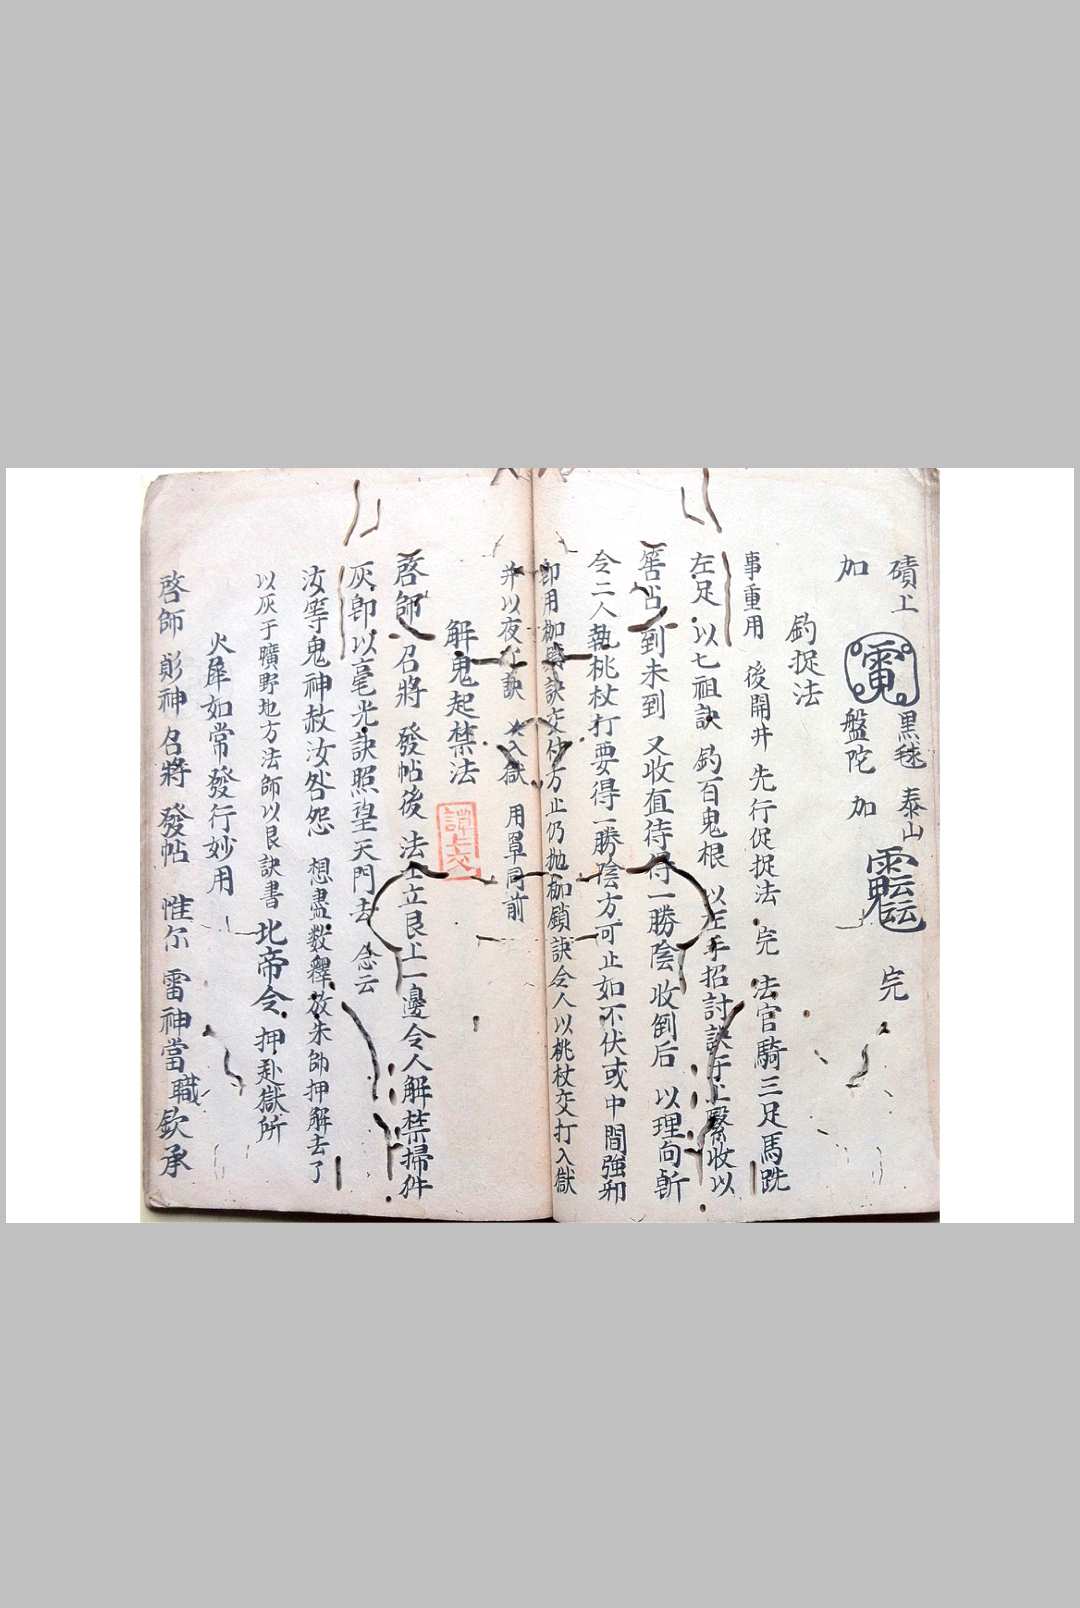 磧上 黑毬 泰山 完
加 盤陀 加
釣捉法
事重用 後開井 先行促捉法 完 法官騎三足馬跣
左足 以七祖訣 釣百鬼根 以左手招討訣于上緊收以
筶占到未到 又收值待得一勝陰 收倒后 以理向斬
令二人執桃杖打要得一勝陰方可止如不伏或中間強邪
即用枷鎖訣交付方止仍拋枷鎖訣令人以桃杖交打入獄
并以夜訣 入獄 用罩同前
解鬼起禁法
啓師 召將 發帖後 法士立艮上一邊令人解禁掃
灰即以毫光訣照望天門去 念云
汝等鬼神赦汝咎怨 想盡数釋放朱帥押解去了
以灰于曠野地方法師以艮訣書 北帝令 押赴獄所
火犀如常發行妙用
啓師 神召將 發帖 惟尔 雷神當職欽承